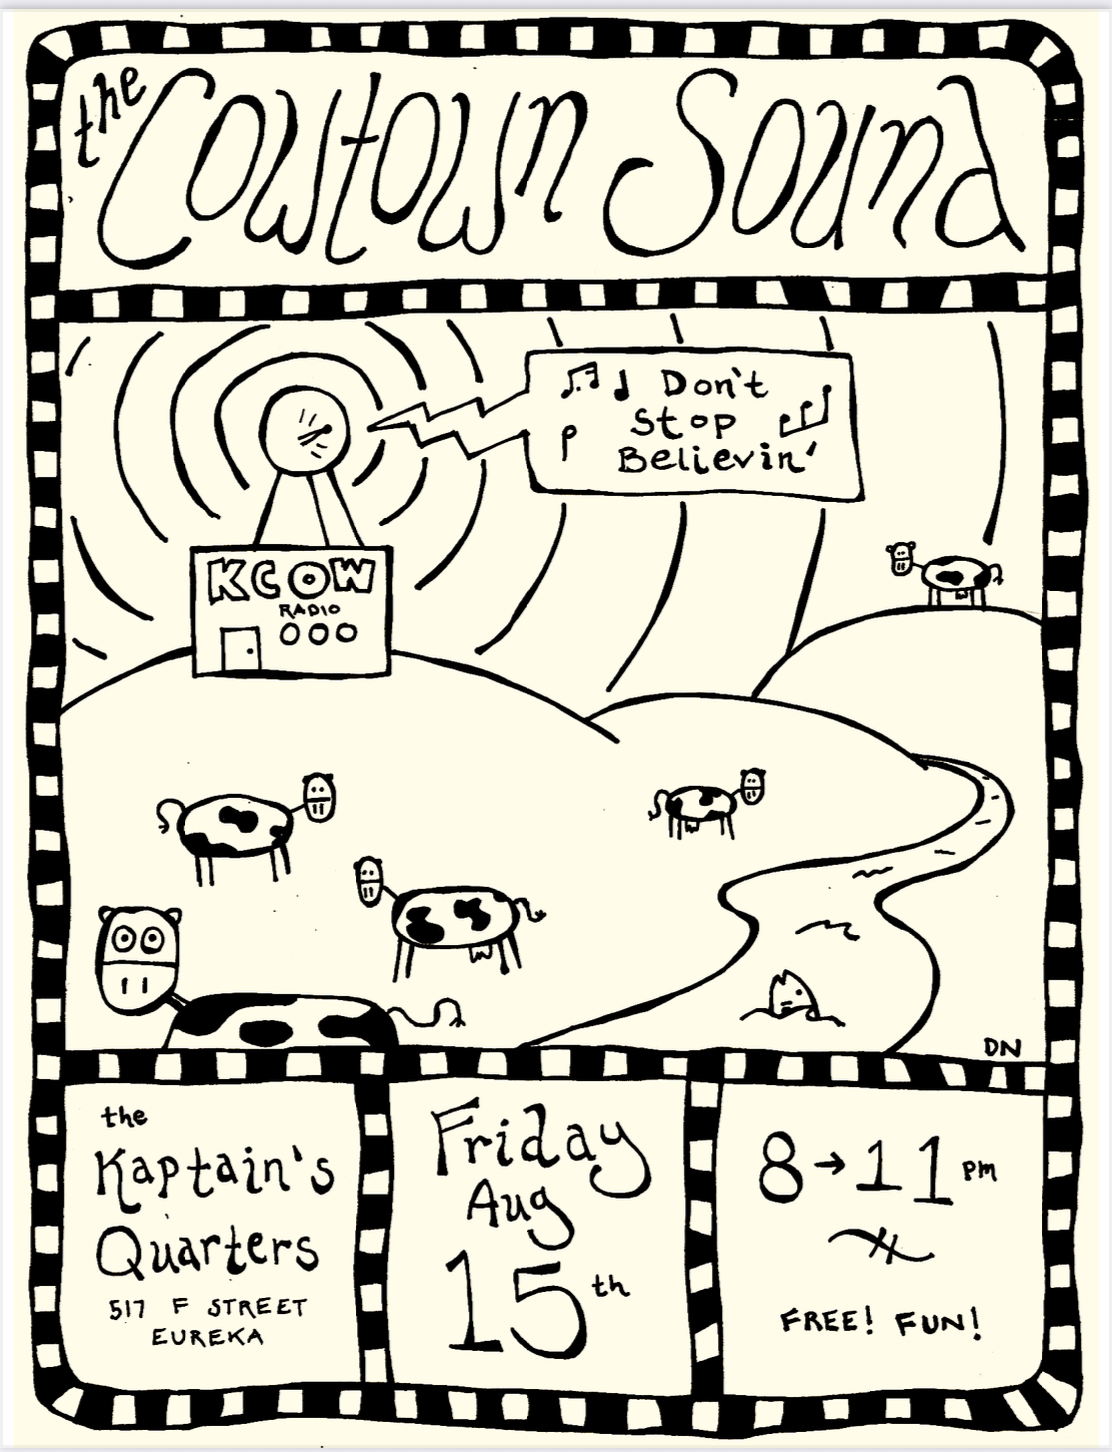 the Cowtown Sound
Don't
Stop
Believin'
KCOW
RADIO
DN
the
Kaptain's
Quarters
517 F STREET
EUREKA
Friday
Aug
15th
8→11 pm
FREE! FUN!